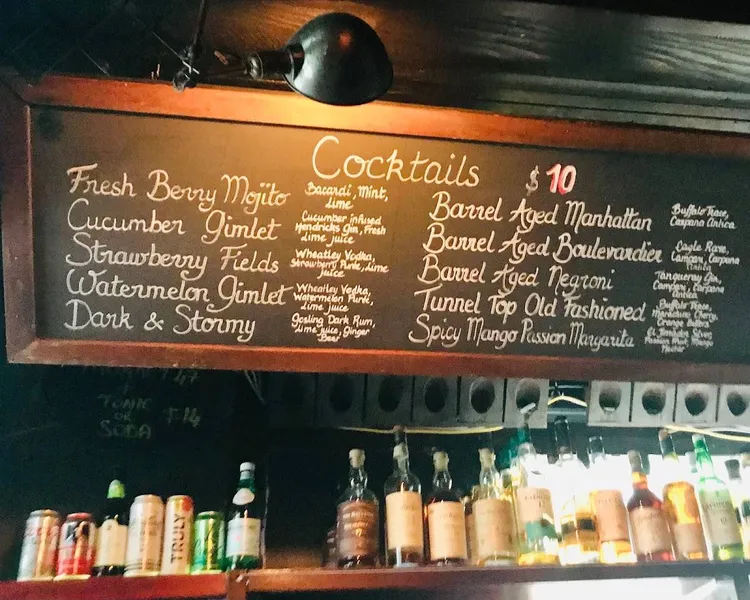 Cocktails $10
Fresh Berry Mojito
Bacardi, Mint,
Lime
Cucumber Gimlet
Cucumber infused
Hendricks Gin, Fresh
Lime juice
Strawberry Fields
Wheatley Vodka,
Strawberry Purée, Lime
Juice
Watermelon Gimlet
Wheatley Vodka,
Watermelon Purée,
Lime juice
Dark & Stormy
Gosling Dark Rum,
Lime juice, Ginger
Beer
Barrel Aged Manhattan
Buffalo Trace,
Carpano Antica
Barrel Aged Boulevardier
Eagle Rare,
Campari, Carpano
Antica
Barrel Aged Negroni
Tanqueray Gin,
Campari, Carpano
Antica
Tunnel Top Old Fashioned
Buffalo Trace,
Maraschino Cherry,
Orange Bitters
Spicy Mango Passion Margarita
Silver
Passion Fruit, Mango
TONIC
OR
SODA
TRULY